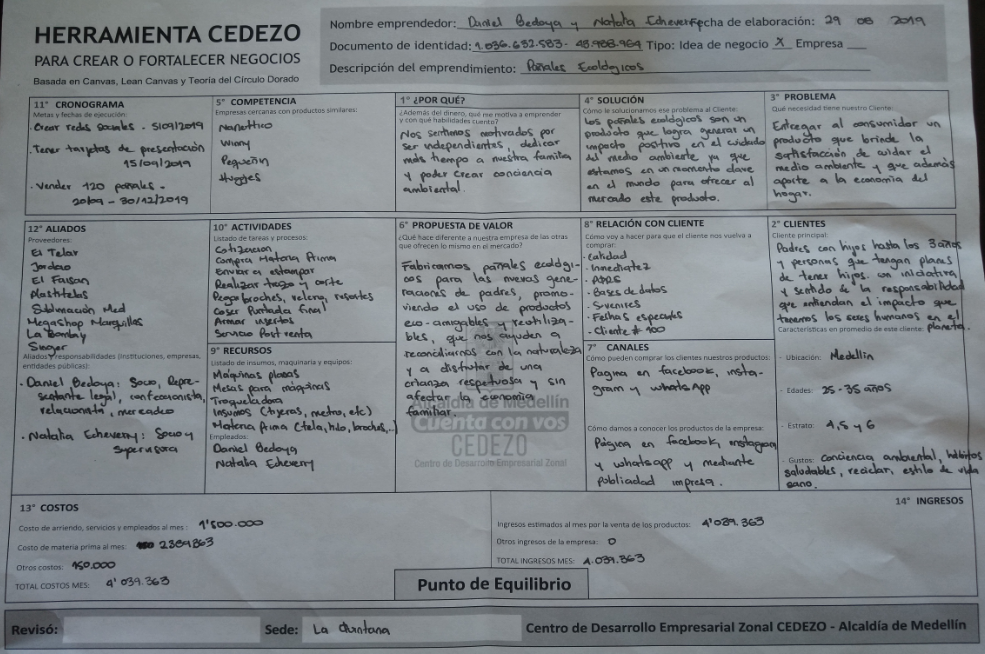 HERRAMIENTA CEDEZO
PARA CREAR O FORTALECER NEGOCIOS
Basada en Canvas, Lean Canvas y Teoría del Círculo Dorado
Nombre emprendedor: Daniel Bedoya y Natalia Echeverry Fecha de elaboración: 29 08 2019
Documento de identidad: 1.036.632.583 - 43.988.964 Tipo: Idea de negocio X Empresa
Descripción del emprendimiento: Pañales Ecológicos
11° CRONOGRAMA
Metas y fechas de ejecución:
- Crear redes sociales - 5/09/2019
- Tener tarjetas de presentación
15/09/2019
- Vender 120 pañales -
20/09 - 30/12/2019
5° COMPETENCIA
Empresas cercanas con productos similares:
Nanottico
Winny
Pequeñin
Huggies
1° ¿POR QUÉ?
¿Además del dinero, qué me motiva a emprender
y con qué habilidades cuento?
Nos sentimos motivados por
ser independientes, dedicar
más tiempo a nuestra familia
y poder crear conciencia
ambiental.
4° SOLUCIÓN
Cómo le solucionamos ese problema al Cliente:
los pañales ecológicos son un
producto que logra generar un
impacto positivo en el cuidado
del medio ambiente ya que
estamos en un momento clave
en el mundo para ofrecer al
mercado este producto.
3° PROBLEMA
Qué necesidad tiene nuestro Cliente:
Entregar al consumidor un
producto que brinde la
satisfacción de cuidar el
medio ambiente y que además
aporte a la economía del
hogar.
12° ALIADOS
Proveedores:
El Telar
Jordao
El Faisan
Plastitelas
Sublimación Med
Megashop Marquillas
La Bombay
Singer
Aliados y responsabilidades (Instituciones, empresas,
entidades públicas):
- Daniel Bedoya: Socio, Repre-
sentante legal, confeccionista,
relacionista, mercadeo
- Natalia Echeverry: Socio y
Supervisora
10° ACTIVIDADES
Listado de tareas y procesos:
Cotización
Compra Materia Prima
Enviar a estampar
Realizar trazo y corte
Pegar broches, velcro, resortes
Coser Puntada final
Armar insertos
Servicio Post venta
9° RECURSOS
Listado de insumos, maquinaria y equipos:
Máquinas planas
Mesas para máquinas
Troqueladora
Insumos (tijeras, metro, etc)
Materia Prima (tela, hilo, broches,..)
Empleados:
Daniel Bedoya
Natalia Echeverry
6° PROPUESTA DE VALOR
¿Qué hace diferente a nuestra empresa de las otras
que ofrecen lo mismo en el mercado?
Fabricamos pañales ecológi-
cos para las nuevas gene-
raciones de padres, promo-
viendo el uso de productos
eco-amigables y reutiliza-
bles, que nos ayuden a
reconciliarnos con la naturaleza
y a disfrutar de una
crianza respetuosa y sin
afectar la economía
familiar.
Alcaldía de Medellín
Cuenta con vos
CEDEZO
Centro de Desarrollo Empresarial Zonal
8° RELACIÓN CON CLIENTE
Cómo voy a hacer para que el cliente nos vuelva a
comprar:
- Calidad
- Inmediatez
- PQRS
- Bases de datos
- Suvenires
- Fechas especiales
- Cliente # 100
7° CANALES
Cómo pueden comprar los clientes nuestros productos:
Pagina en facebook, insta-
gram y whatsApp
Cómo damos a conocer los productos de la empresa:
Página en facebook, instagram
y whatsApp y mediante
publicidad impresa.
2° CLIENTES
Cliente principal:
Padres con hijos hasta los 3 años
y personas que tengan planes
de tener hijos. con iniciativa
y sentido de la responsabilidad
que entiendan el impacto que
tenemos los seres humanos en el
planeta.
Características en promedio de este cliente:
- Ubicación: Medellín
- Edades: 25 - 35 años
- Estrato: 4, 5 y 6
- Gustos: conciencia ambiental, hábitos
saludables, reciclar, estilo de vida
sano.
13° COSTOS
Costo de arriendo, servicios y empleados al mes: 1'500.000
Costo de materia prima al mes: 2389363
Otros costos: 150.000
TOTAL COSTOS MES: 4'039.363
14° INGRESOS
Ingresos estimados al mes por la venta de los productos: 4'039.363
Otros ingresos de la empresa: 0
TOTAL INGRESOS MES: 4.039.363
Punto de Equilibrio
Revisó:
Sede: La Quintana
Centro de Desarrollo Empresarial Zonal CEDEZO - Alcaldía de Medellín